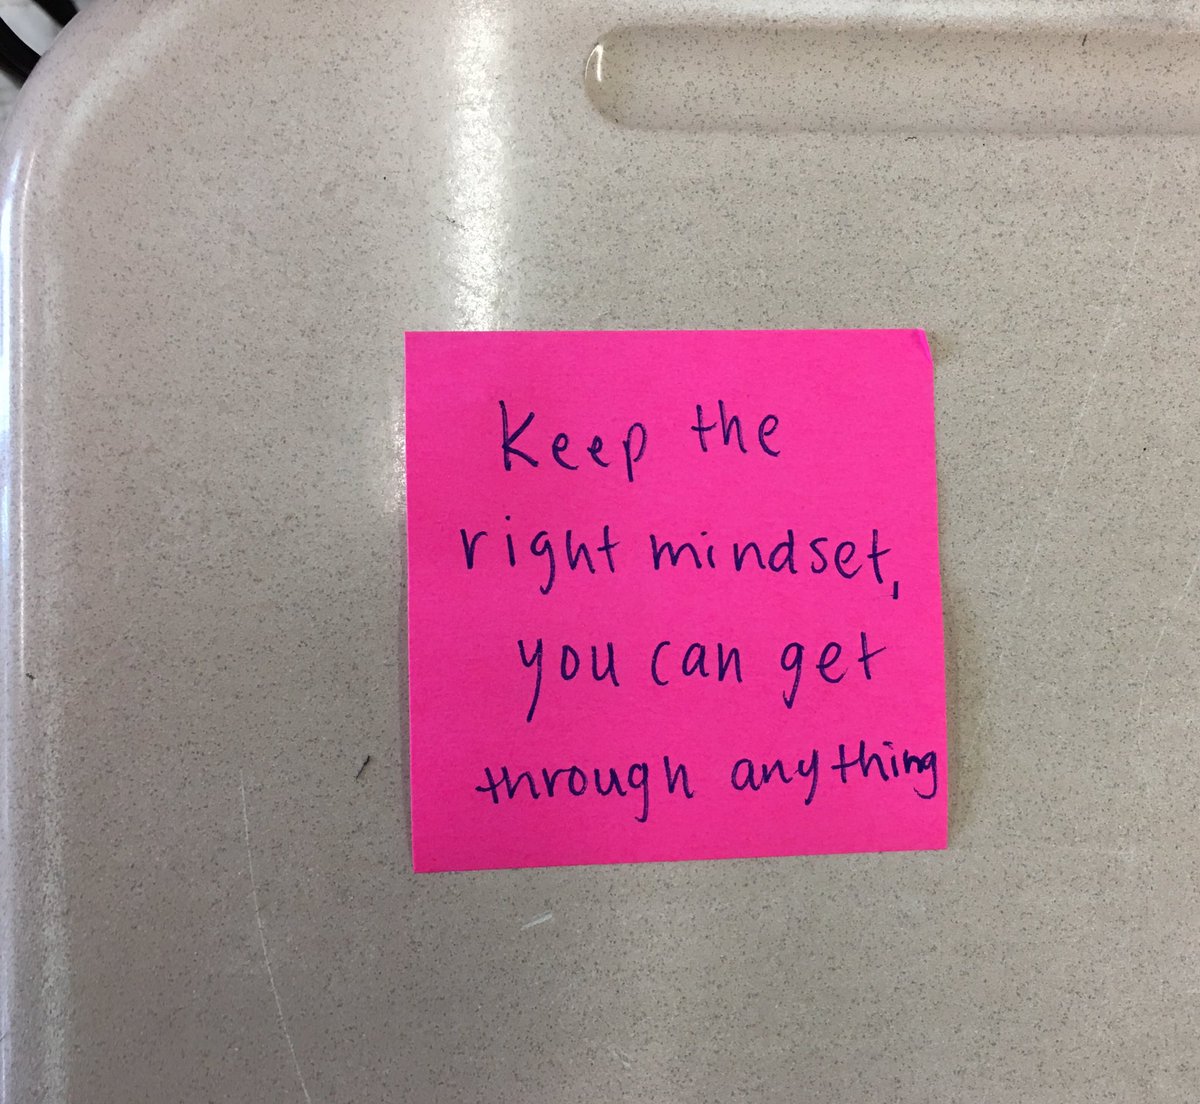 Keep the
right mindset,
you can get
through anything